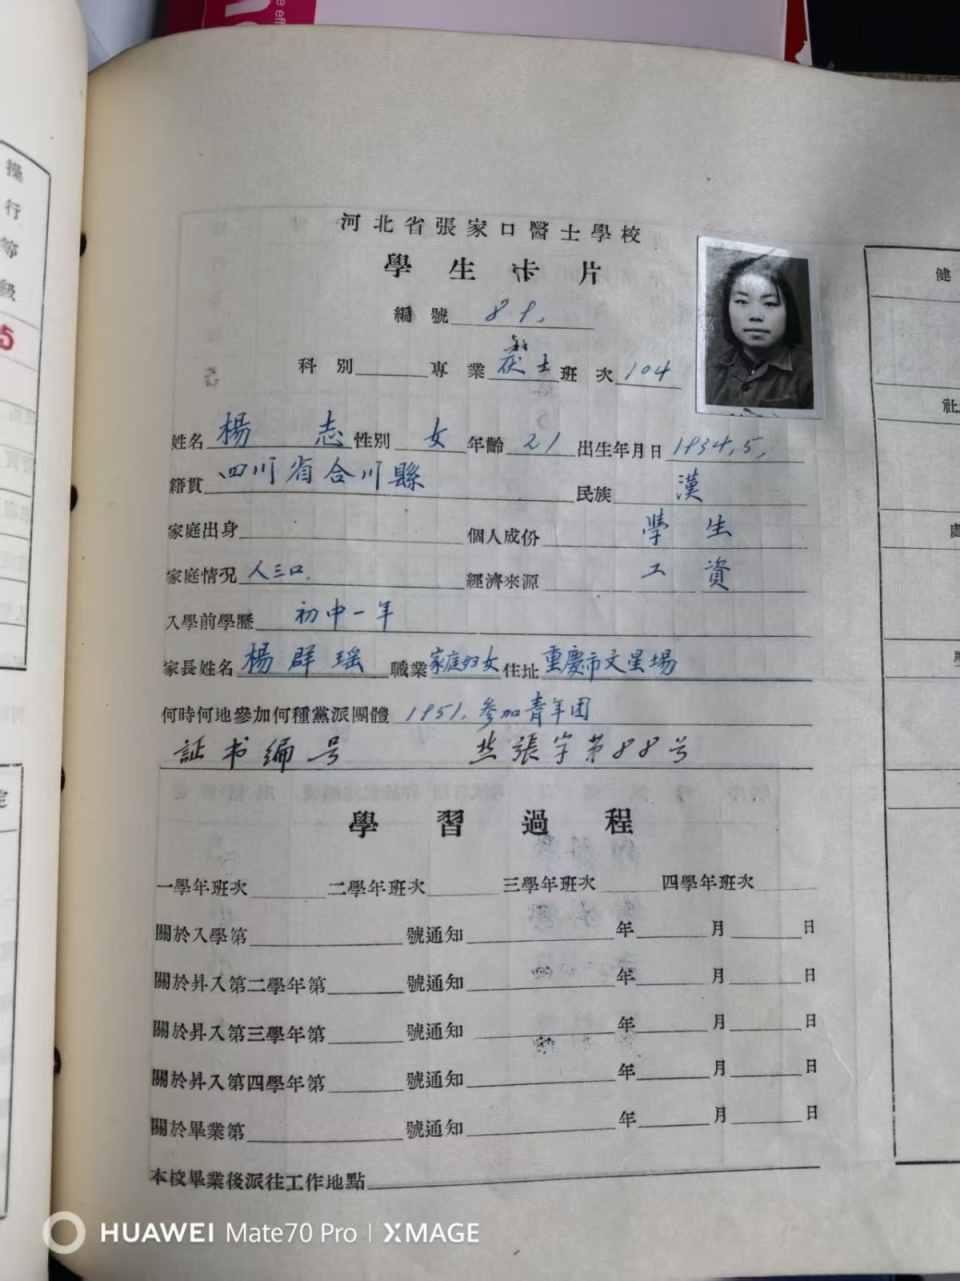 操
行
等
級
5
河北省張家口醫士學校
學生卡片
編號 89.
科別 專業 士 班次 104
姓名 楊志 性別 女 年齡 21 出生年月日 1934,5,
籍貫 四川省合川縣 民族 漢
家庭出身 個人成份 學生
家庭情况 人三口. 經濟來源 工資
入學前學歷 初中一年
家長姓名 楊群瑶 職業 家庭妇女 住址 重慶市文星場
何時何地參加何種黨派團體 1951,参加青年团
証书編号 張字第88号
學習過程
一學年班次 二學年班次 三學年班次 四學年班次
關於入學第 號通知 年 月 日
關於昇入第二學年第 號通知 年 月 日
關於昇入第三學年第 號通知 年 月 日
關於昇入第四學年第 號通知 年 月 日
關於畢業第 號通知 年 月 日
本校畢業後派往工作地點
健
社
定
HUAWEI Mate70 Pro | XMAGE